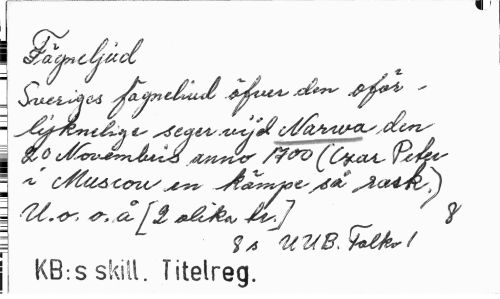 Fägneljud
Sveriges fägneliud öfver den oför-
lijknelige seger vijd Narwa den
20 Novembris anno 1700 (Czar Peter
i Muscou en kämpe så rask.)
U.o.o.å [2 olika tr.] 8
8 s UUB. Folkv 1
KB:s skill. Titelreg.